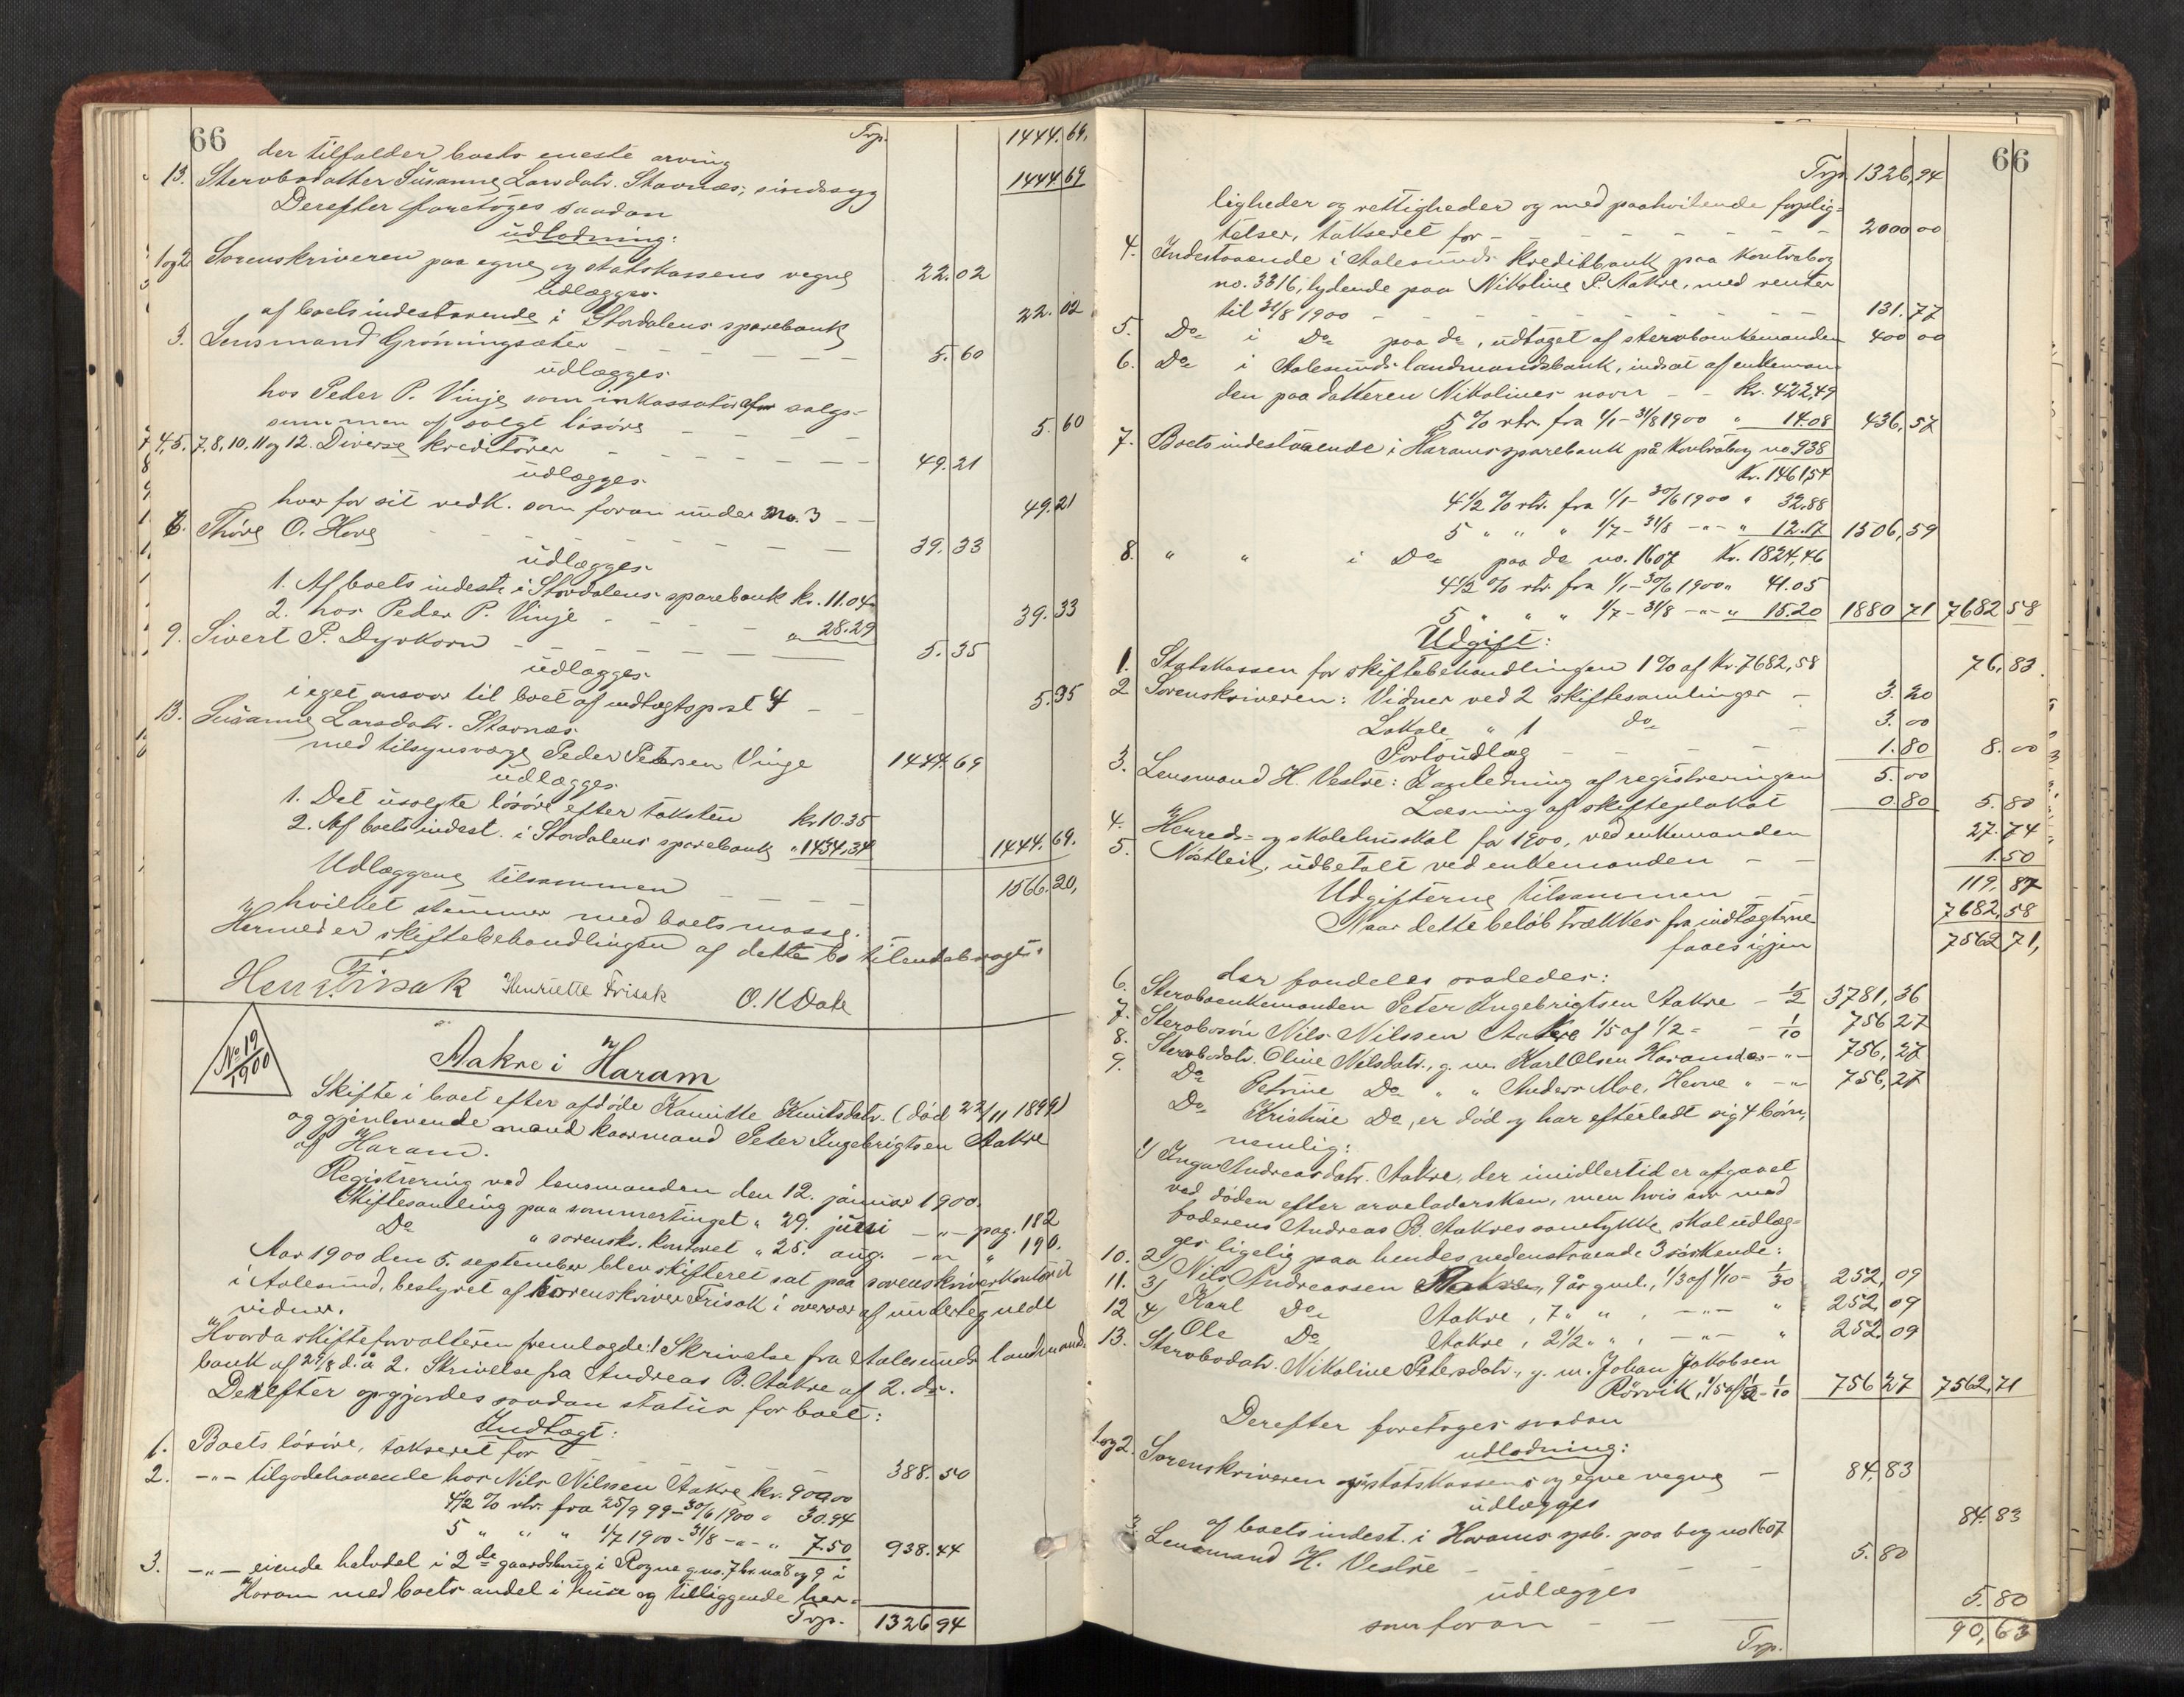 66
Trp. 1444.69.
der tilfalder boets eneste arving
13. Stervbodatter Susanne Larsdatr. Stavnæs, sindssyg 1444 69
Derefter foretoges saadan
udlodning:
1 og 2 Sorenskriveren paa egne og statskassens vegne 22.02
udlægges
af boets indestaaende i Stordalens sparebank 22.02
3. Lensmand Grøningsæter 5.60
udlægges
hos Peder P. Vinje som inkassator for salgs-
summen af solgt løsøre 5.60
4, 5, 7, 8, 10, 11 og 12. Diverse kreditorer 49.21
udlægges
hver for sit vedk. som foran under no. 3 49.21
6. Thore O. Hove 39.33
udlægges
1. Af boets indest. i Stordalens sparebank kr. 11.04
2. hos Peder P. Vinje " 28.29 39.33
9. Sivert P. Dyrkorn 5.35
udlægges
i eget ansvar til boet af indtægtspost 4 5.35
13. Susanne Larsdatr. Stavnæs
med tilsynsværge Peder Petersen Vinje 1444.69
udlægges
1. Det usolgte løsøre efter taksten kr. 10.35
2. Af boets indest. i Stordalens sparebank " 1434.34 1444.69.
Udlæggene tilsammen 1566.20,
hvilket stemmer med boets masse.
Hermed er skiftebehandlingen af dette bo tilendebragt.
Henr. Frisak Henriette Frisak O. K Dale
No 19/1900
Aakre i Haram
Skifte i boet efter afdøde Kamitte Knutsdatr. (død 22/11 1899)
og gjenlevende mand kaarmand Peter Ingebrigtsen Aakre
af Haram.
Registrering ved lensmanden den 12. januar 1900.
Skiftesamling paa sommertinget " 29. juni -"- pag. 182
Do " sorenskr. kontoret " 25. aug. -"- " 190.
Aar 1900 den 5. september blev skifteret sat paa sorenskriverkontoret
i Aalesund, bestyret af sorenskriver Frisak i overvær af undertegnede
vidner.
Hvorda skifteforvalteren fremlagde: 1 Skrivelse fra Aalesunds landmands
bank af 29/8 d. å 2. Skrivelse fra Andreas B. Aakre af 2. ds.
Derefter opgjordes saadan status for boet:
Indtægt:
1. Boets løsøre, takseret for 388.50
2. -"- tilgodehavende hos Nils Nilssen Aakre kr. 900,00
4½ % rtr. fra 25/9 99 - 30/6 1900 " 30.94
5 " " " 1/7 1900 - 31/8 -"- " 7.50 938.44
3. -"- eiende halvdel i 2de gaardsbrug i Rogne g. no. 7 br. no 8 og 9 i
Haram med boets andel i huse og tilliggende her-
Trp. 1326 94
66
Trp. 1326,94
ligheder og rettigheder og med paahvilende forplig-
telser, takseret for 2000 00
4. Indestaaende i Aalesunds kreditbank paa kontrabog
no. 3316, lydende paa Nikoline P. Aakre, med renter
til 31/8 1900 131.77
5. Do i Do paa do, udtaget af stervboenkemanden 400 00
6. Do i Aalesunds landmandsbank, indsat af enkeman-
den paa datteren Nikolines navn kr. 422,49
5 % rtr. fra 1/1 - 31/8 1900 " 14.08 436,57
7. Boets indestaaende i Harams sparebank på kontrabog no 938
kr. 1461,54
4½ % rtr. fra 1/1 - 30/6 1900 " 32.88
5 " " " 1/7 - 31/8 -"- " 12.17 1506,59
8. " " i Do paa do no. 1607 kr. 1824,46
4½ % rtr. fra 1/1 - 30/6 1900 " 41.05
5 " " " 1/7 - 31/8 -"- " 15.20 1880 71 7682 58
Udgift:
1. Statskassen for skiftebehandlingen 1 % af kr. 7682,58 76,83
2 Sorenskriveren: Vidner ved 2 skiftesamlinger 3.20
Lokale " 1 do 3.00
Portoudlæg 1.80 8.00
3. Lensmand H. Vestre: I anledning af registreringen 5.00
Læsning af skifteplakat 0.80 5.80
4. Herreds- og skolehusskat for 1900, ved enkemanden 27.74
5. Nøstleie, udbetalt ved enkemanden 1.50
Udgifterne tilsammen 119,87
Naar dette beløb trækkes fra indtægterne 7682,58
faaes igjen 7562 71,
der fordeles saaledes:
6. Stervboenkemanden Peter Ingebrigtsen Aakre - 1/2 3781,36
7. Stervbosøn Nils Nilssen Aakre 1/5 af 1/2 = 1/10 756 27
8. Stervbodatr. Oline Nilsdatr., g. m. Karl Olsen Haramsø -"- 756,27
9. Do Petrine Do " " Anders Moe, Herøe " -"- 756,27
Do Kristine Do, er død og har efterladt sig 4 børn,
nemlig:
1) Inga Andreasdatr. Aakre, der imidlertid er afgaaet
ved døden efter arveladersken, men hvis arv med
faderens Andreas B. Aakres samtykke skal udlæg-
ges ligelig paa hendes nedenstaaende 3 søskende:
10. 2) Nils Andreassen Aakre, 9 år gml., 1/3 af 1/10 = 1/30 252,09
11. 3) Karl Do Aakre, 7 " " , -"- " 252,09
12 4) Ole Do Aakre, 2½ " " , -"- " 252.09
13. Stervbodatr. Nikoline Petersdatr., g. m. Johan Jakobsen
Rørvik, 1/5 af 1/2 = 1/10 756 27 7562,71
Derefter foretoges saadan
udlodning:
1 og 2. Sorenskriveren på statskassens og egne vegne 84,83
udlægges
af boets indest. i Harams spb. paa bog no 1607 84.83
3. Lensmand H. Vestre 5.80
udlægges
som foran 5.80
Trp. 90,63